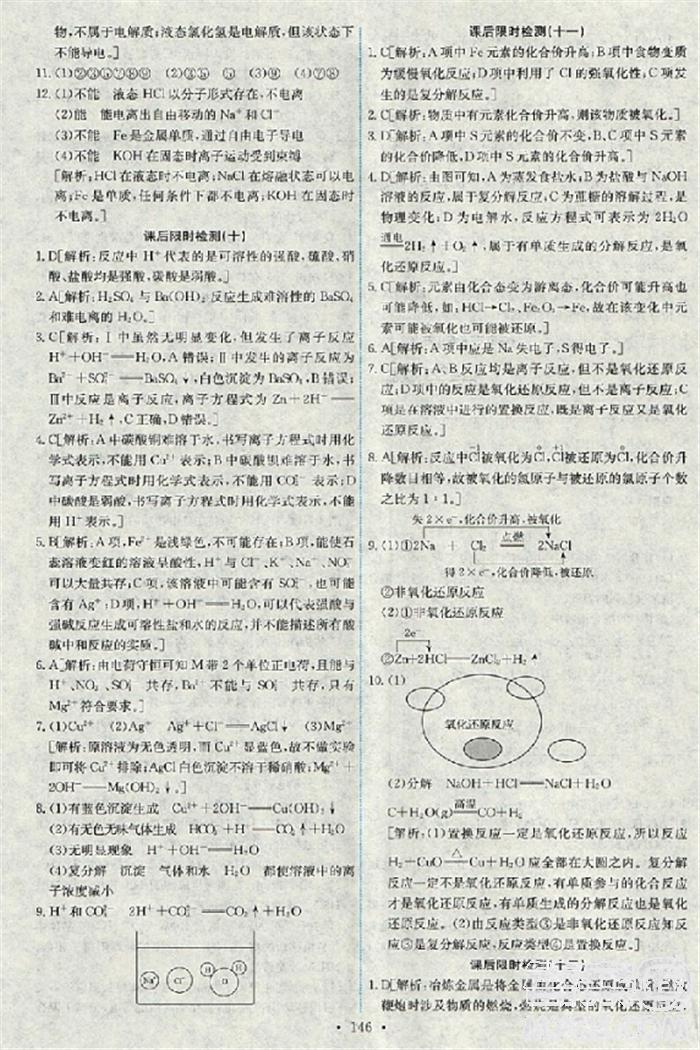 物,不属于电解质;液态氯化氢是电解质,但该状态下
不能导电。]
12.(1)不能 液态 HCl 以分子形式存在,不电离
(2)能 能电离出自由移动的 Na⁺ 和 Cl⁻
(3)不能 Fe 是金属单质,通过自由电子导电
(4)不能 KOH 在固态时离子运动受到束缚
[解析:HCl 在液态时不电离;NaCl 在熔融状态可以电
离;Fe 是单质,任何条件下都不电离;KOH 在固态时
不电离。]
课后限时检测(十)
1.D[解析:反应中 H⁺ 代表的是可溶性的强酸,硫酸、硝
酸、盐酸均是强酸,碳酸是弱酸。]
2.A[解析:H₂SO₄ 与 Ba(OH)₂ 反应生成难溶性的 BaSO₄
和难电离的 H₂O。]
3.C[解析:Ⅰ中虽然无明显变化,但发生了离子反应
H⁺+OH⁻══H₂O,A 错误;Ⅱ中发生的离子反应为
Ba²⁺+SO₄²⁻══BaSO₄↓,白色沉淀为 BaSO₄,B 错误;
Ⅲ中反应是离子反应,离子方程式为 Zn+2H⁺══
Zn²⁺+H₂↑,C 正确,D 错误。]
4.C[解析:A 中碳酸铜难溶于水,书写离子方程式时用化
学式表示,不能用 Cu²⁺ 表示;B 中碳酸钡难溶于水,书
写离子方程式时用化学式表示,不能用 CO₃²⁻ 表示;D
中碳酸是弱酸,书写离子方程式时用化学式表示,不能
用 H⁺ 表示。]
5.B[解析:A 项,Fe²⁺ 是浅绿色,不可能存在;B 项,能使石
蕊溶液变红的溶液显酸性,H⁺ 与 Cl⁻、K⁺、Na⁺、NO₃⁻
可以大量共存;C 项,该溶液中可能含有 SO₄²⁻,也可能
含有 Ag⁺;D 项,H⁺+OH⁻══H₂O,可以代表强酸与
强碱反应生成可溶性盐和水的反应,并不能描述所有酸
碱中和反应的实质。]
6.A[解析:由电荷守恒可知 M 带 2 个单位正电荷,且能与
H⁺、NO₃⁻、SO₄²⁻ 共存,Ba²⁺ 不能与 SO₄²⁻ 共存,只有
Mg²⁺ 符合要求。]
7.(1)Cu²⁺ (2)Ag⁺ Ag⁺+Cl⁻══AgCl↓ (3)Mg²⁺
[解析:原溶液为无色透明,而 Cu²⁺ 显蓝色,故不做实验
即可将 Cu²⁺ 排除;AgCl 白色沉淀不溶于稀硝酸;Mg²⁺+
2OH⁻══Mg(OH)₂↓。]
8.(1)有蓝色沉淀生成 Cu²⁺+2OH⁻══Cu(OH)₂↓
(2)有无色无味气体生成 HCO₃⁻+H⁺══CO₂↑+H₂O
(3)无明显现象 H⁺+OH⁻══H₂O
(4)复分解 沉淀 气体和水 H₂O 都使溶液中的离
子浓度减小
9.H⁺ 和 CO₃²⁻ 2H⁺+CO₃²⁻══CO₂↑+H₂O
Na⁺ Cl⁻ H H O
课后限时检测(十一)
1.C[解析:A 项中 Fe 元素的化合价升高;B 项中食物变质
为缓慢氧化反应;D 项中利用了 Cl 的强氧化性;C 项发
生的是复分解反应。]
2.C[解析:物质中有元素化合价升高,则该物质被氧化。]
3.D[解析:A 项中 S 元素的化合价不变,B、C 项中 S 元素
的化合价降低,D 项中 S 元素的化合价升高。]
4.D[解析:由图可知,A 为蒸发食盐水;B 为盐酸与 NaOH
溶液的反应,属于复分解反应;C 为蔗糖的溶解过程,是
物理变化;D 为电解水,反应方程式可表示为 2H₂O
通电══2H₂↑+O₂↑,属于有单质生成的分解反应,是氧
化还原反应。]
5.C[解析:元素由化合态变为游离态,化合价可能升高也
可能降低,如:HCl→Cl₂、Fe₂O₃→Fe,故在该变化中元
素可能被氧化也可能被还原。]
6.A[解析:A 项中应是 Na 失电子,S 得电子。]
7.C[解析:A、B 反应均是离子反应,但不是氧化还原反
应;D 项中的反应是氧化还原反应,但不是离子反应;C
项是在溶液中进行的置换反应,既是离子反应又是氧化
还原反应。]
8.A[解析:反应中 Cl 被氧化为 Cl,Cl 被还原为 Cl,化合价升
降数目相等,故被氧化的氯原子与被还原的氯原子个数
之比为 1∶1。]
失 2×e⁻,化合价升高,被氧化
9.(1)①2Na + Cl₂ 点燃══ 2NaCl
得 2×e⁻,化合价降低,被还原
②非氧化还原反应
(2)①非氧化还原反应
2e⁻
②Zn+2HCl══ZnCl₂+H₂↑
10.(1)
氧化还原反应
(2)分解 NaOH+HCl══NaCl+H₂O
C+H₂O(g)高温══CO+H₂
[解析:(1)置换反应一定是氧化还原反应,所以反应
H₂+CuO△══Cu+H₂O 应全部在大圆之内。复分解
反应一定不是氧化还原反应,有单质参与的化合反应
才是氧化还原反应,有单质生成的分解反应也是氧化
还原反应。(2)由反应类型③是非氧化还原反应知反
应③是复分解反应,反应类型④是置换反应。]
课后限时检测(十二)
1.D[解析:冶炼金属是将金属由化合态
鞭炮时涉及物质的燃烧,燃烧是典型的氧化还原反应,
146